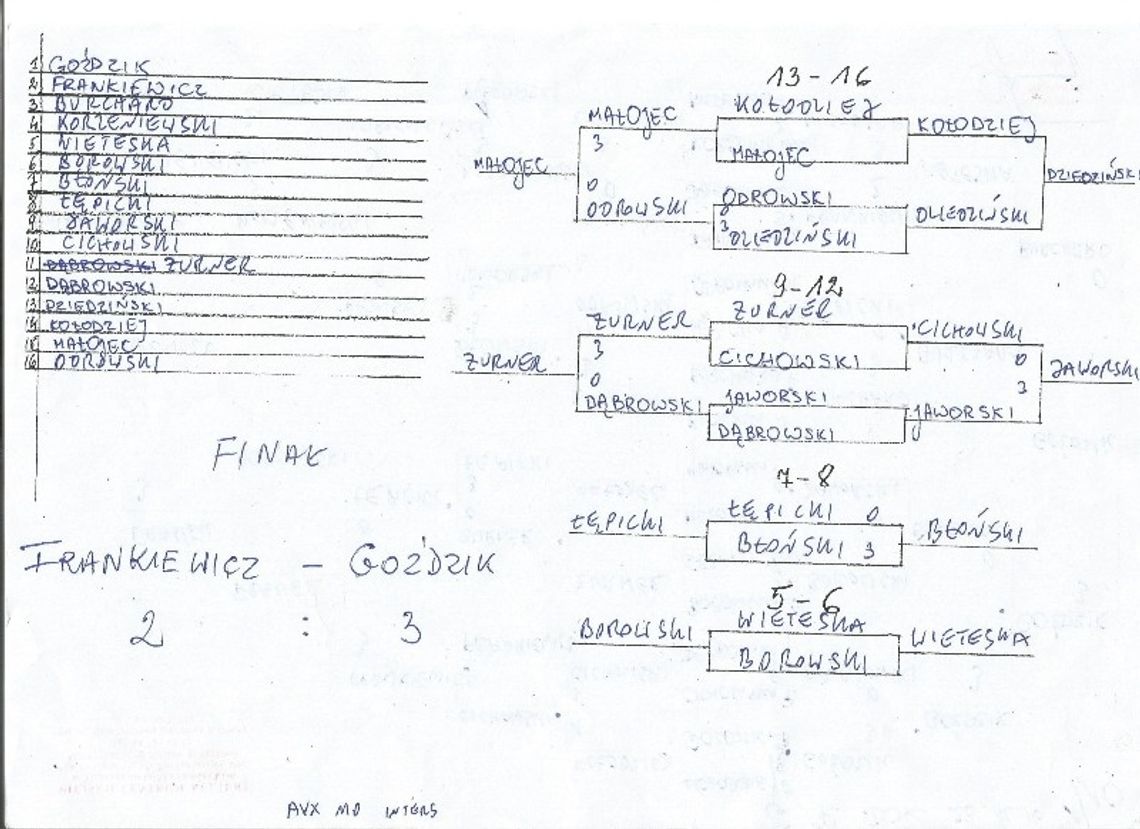 1 GOŹDZIK
2 FRANKIEWICZ
3 BURCHARD
4 KORZENIEWSKI
5 WIETESKA
6 BOROWSKI
7 BŁOŃSKI
8 ŁĘPICKI
9 JAWORSKI
10 CICHOWSKI
11 DĄBROWSKI ŻURNER
12 DĄBROWSKI
13 DZIEDZIŃSKI
14 KOŁODZIEJ
15 MAŁOJEC
16 ODROWSKI
13 - 16
MAŁOJEC KOŁODZIEJ KOŁODZIEJ
3
MAŁOJEC MAŁOJEC DZIEDZIŃSKI
0
ODROWSKI ODROWSKI DZIEDZIŃSKI
3
DZIEDZIŃSKI
9-12
ŻURNER ŻURNER CICHOWSKI
3 0
ŻURNER CICHOWSKI JAWORSKI
0 3
DĄBROWSKI JAWORSKI JAWORSKI
DĄBROWSKI 0
7-8
ŁĘPICKI ŁĘPICKI 0 BŁOŃSKI
BŁOŃSKI 3
5-6
BOROWSKI WIETESKA WIETESKA
BOROWSKI
FINAŁ
FRANKIEWICZ - GOŹDZIK
2 : 3